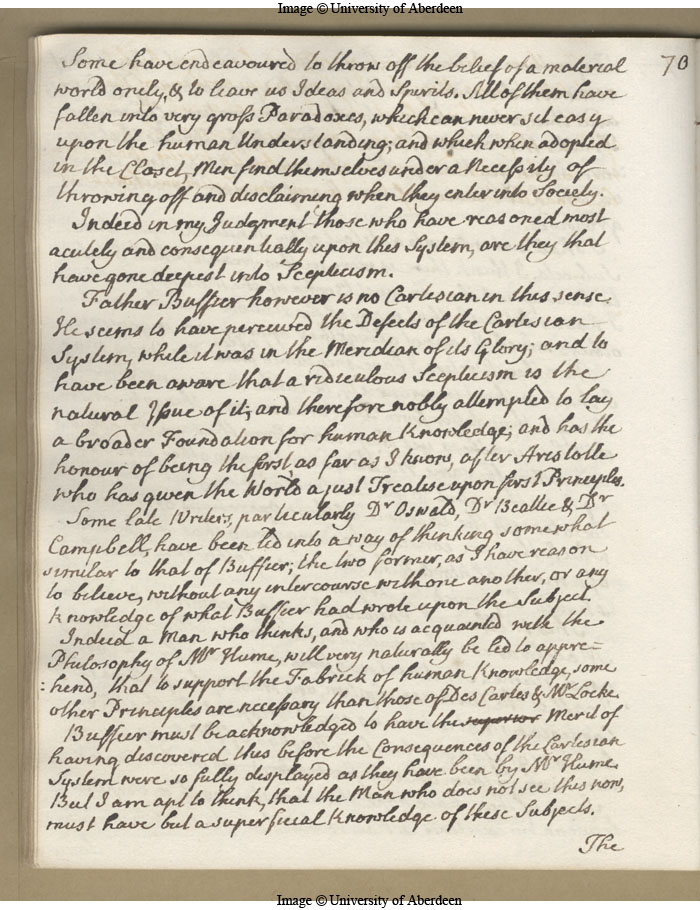 Image © University of Aberdeen
70
Some have endeavoured to throw off the belief of a material
world onely, & to leave us Ideas and Spirits. All of them have
fallen into very gross Paradoxes, which can never sit easy
upon the human Understanding; and which when adopted
in the Closet, Men find themselves under a Necessity of
throwing off and disclaiming when they enter into Society.
Indeed in my Judgment those who have reasoned most
acutely and consequentially upon this System, are they that
have gone deepest into Scepticism.
Father Buffier however is no Cartesian in this sense.
He seems to have perceived the Defects of the Cartesian
System, while it was in the Meridian of its Glory; and to
have been aware that a ridiculous Scepticism is the
natural Issue of it; and therefore nobly attempted to lay
a broader Foundation for human Knowledge; and has the
honour of being the first, as far as I know, after Aristotle
who has given the World a just Treatise upon first Principles.
Some late Writers, particularly Dr Oswald, Dr Beattie & Dr
Campbell, have been led into a way of thinking somewhat
similar to that of Buffier; the two former, as I have reason
to believe, without any intercourse with one another, or any
Knowledge of what Buffier had wrote upon the Subject.
Indeed a Man who thinks, and who is acquainted with the
Philosophy of Mr Hume, will very naturally be led to appre=
:hend, that to support the Fabrick of human Knowledge, some
other Principles are necessary than those of Des Cartes & Mr Locke.
Buffier must be acknowledged to have the superior Merit of
having discovered this before the Consequences of the Cartesian
System were so fully displayed as they have been by Mr Hume.
But I am apt to think, that the Man who does not see this now,
must have but a superficial Knowledge of these Subjects.
The
Image © University of Aberdeen